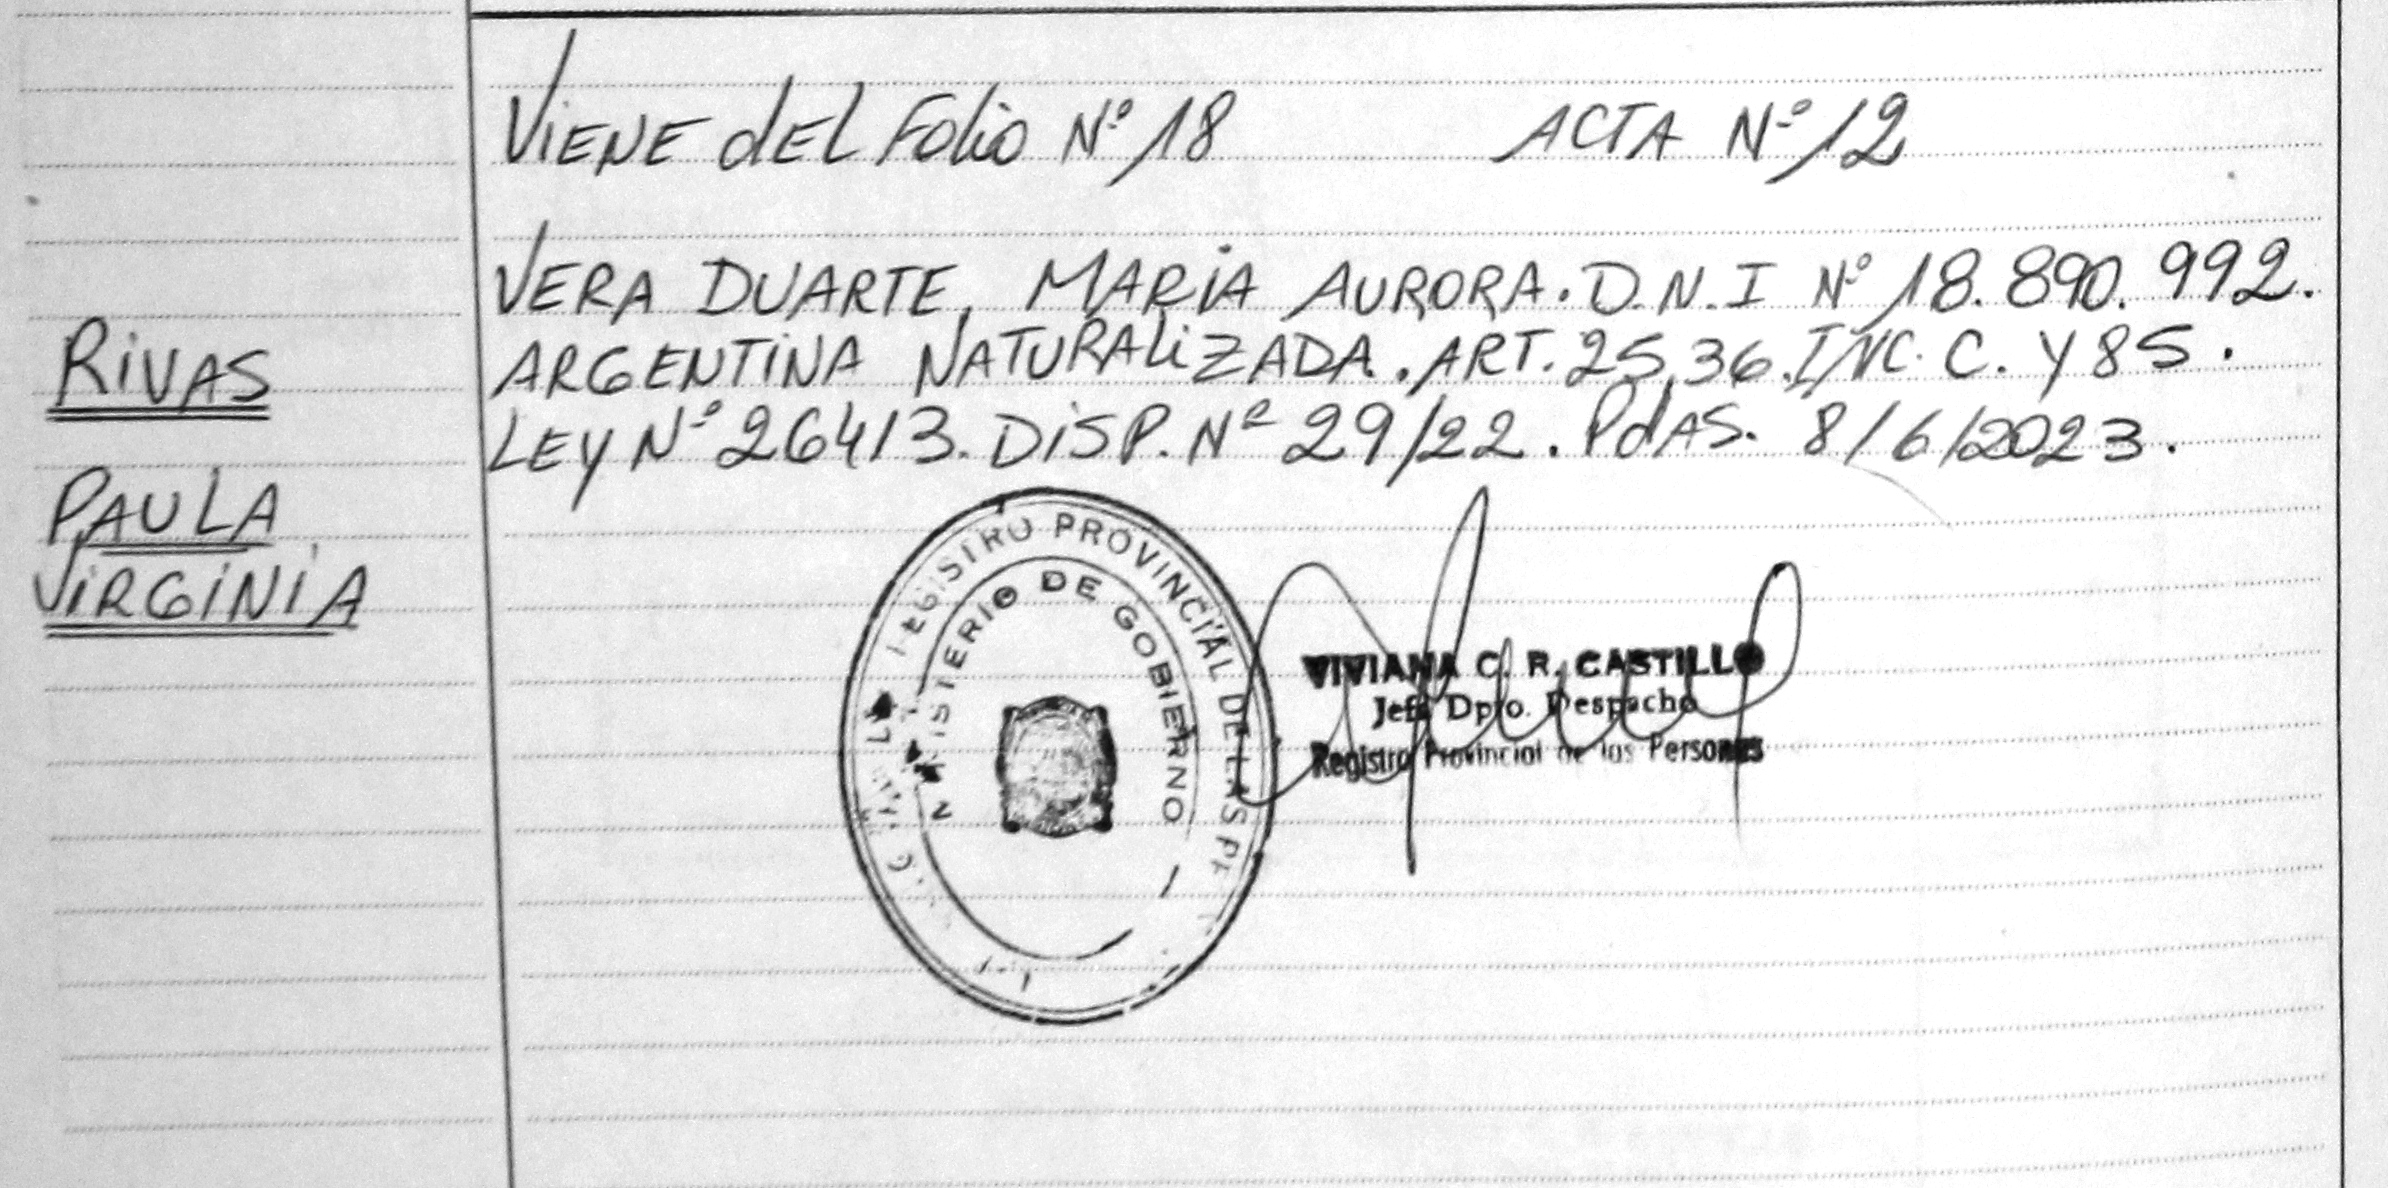 VIENE dEL Folio Nº 18 ACTA Nº 12
VERA DUARTE, MARIA AURORA. D.N.I Nº 18.890.992.
ARGENTINA NATURALIZADA. ART. 25, 36. INC. C. Y 85.
LEY Nº 26413. DISP. Nº 29/22. PdAS. 8/6/2023.
RIVAS
PAULA
VIRGINIA
REGISTRO PROVINCIAL DE LAS
MINISTERIO DE GOBIERNO
VIVIANA C. R. CASTILLO
Jefe Dpto. Despacho
Registro Provincial de las Personas